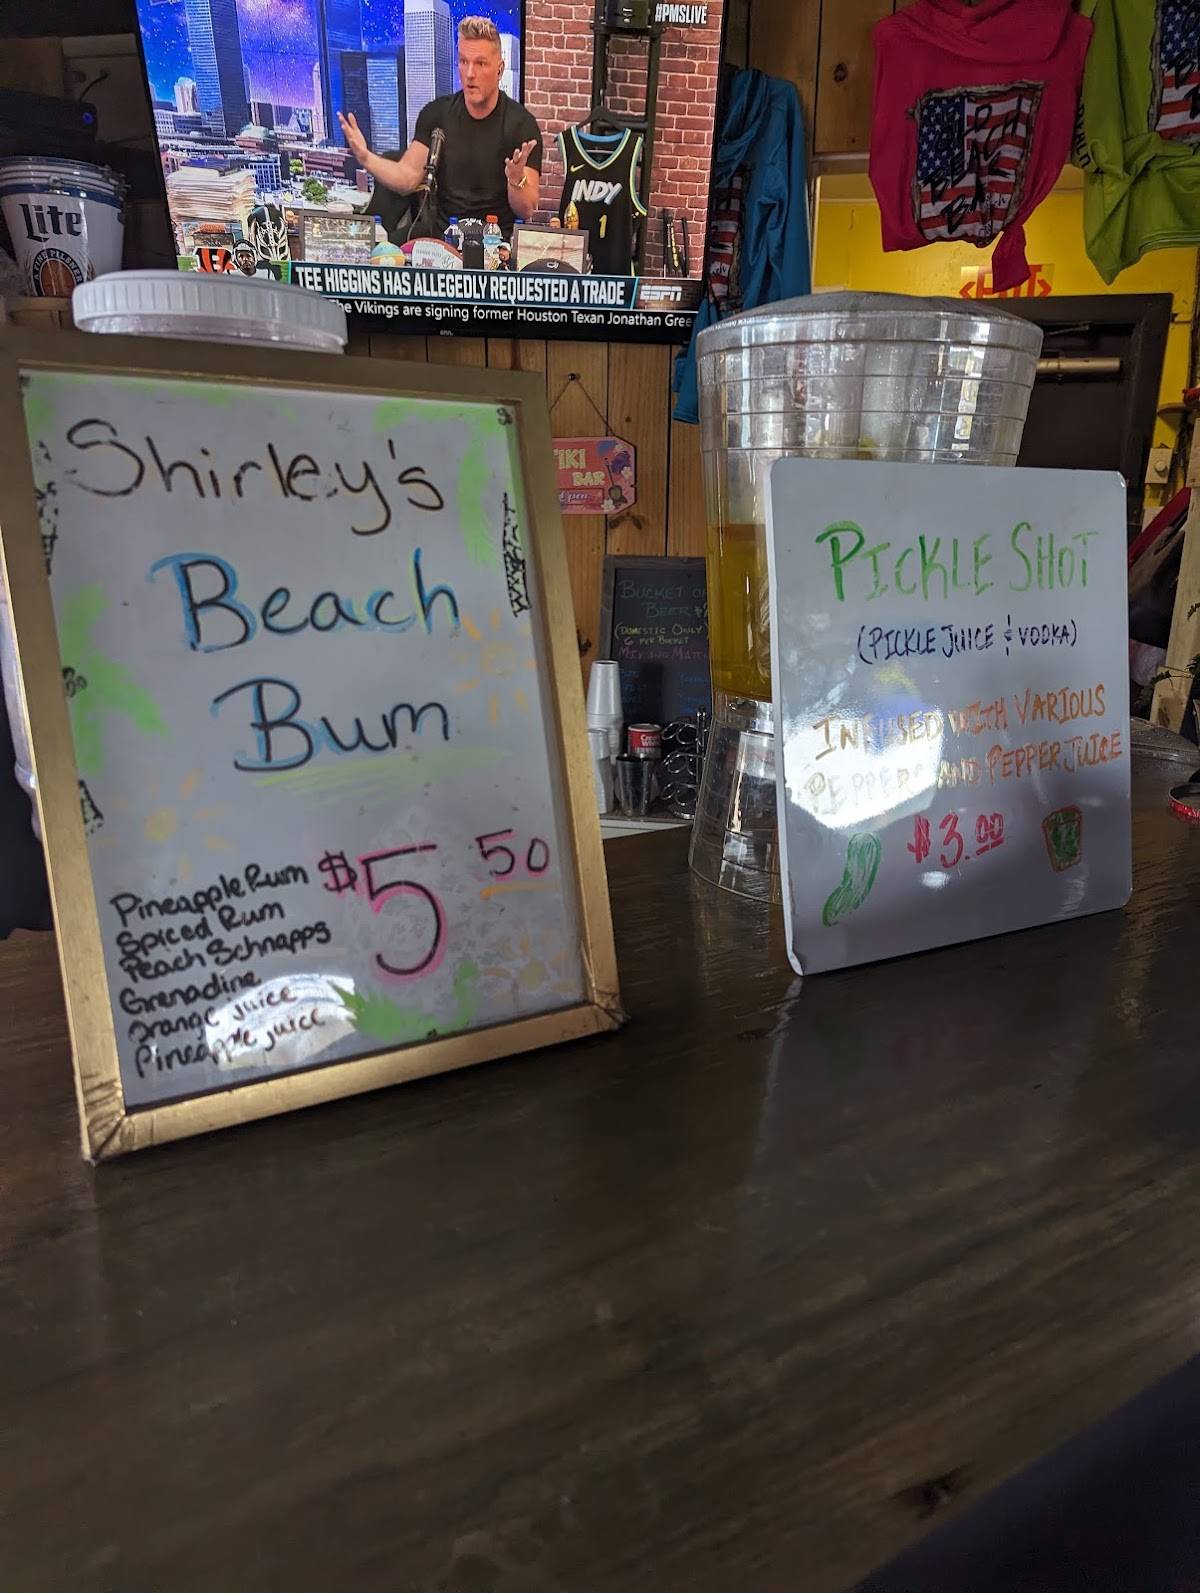 #PMSLIVE
INDY
1
TEE HIGGINS HAS ALLEGEDLY REQUESTED A TRADE
ESPN
The Vikings are signing former Houston Texan Jonathan Gree
Lite
A FINE PILSNER
Shirley's
Beach
Bum
$5 50
Pineapple Rum
Spiced Rum
Peach Schnapps
Grenadine
Orange juice
Pineapple juice
TIKI
BAR
Open
BUCKET OF
BEER
(DOMESTIC ONLY)
6 PER BUCKET
MIX AND MATCH
PICKLE SHOT
(PICKLE JUICE & VODKA)
INFUSED WITH VARIOUS
PEPPERS AND PEPPER JUICE
$3.00